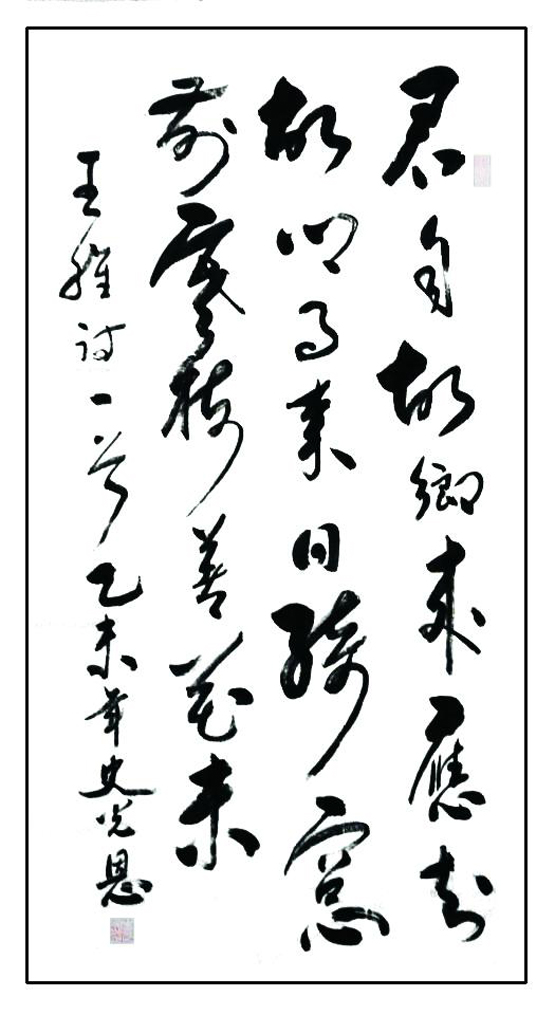 君自故鄉來應知
故鄉事來日綺窻
前寒梅著花未
王維詩一首乙未年史光恩